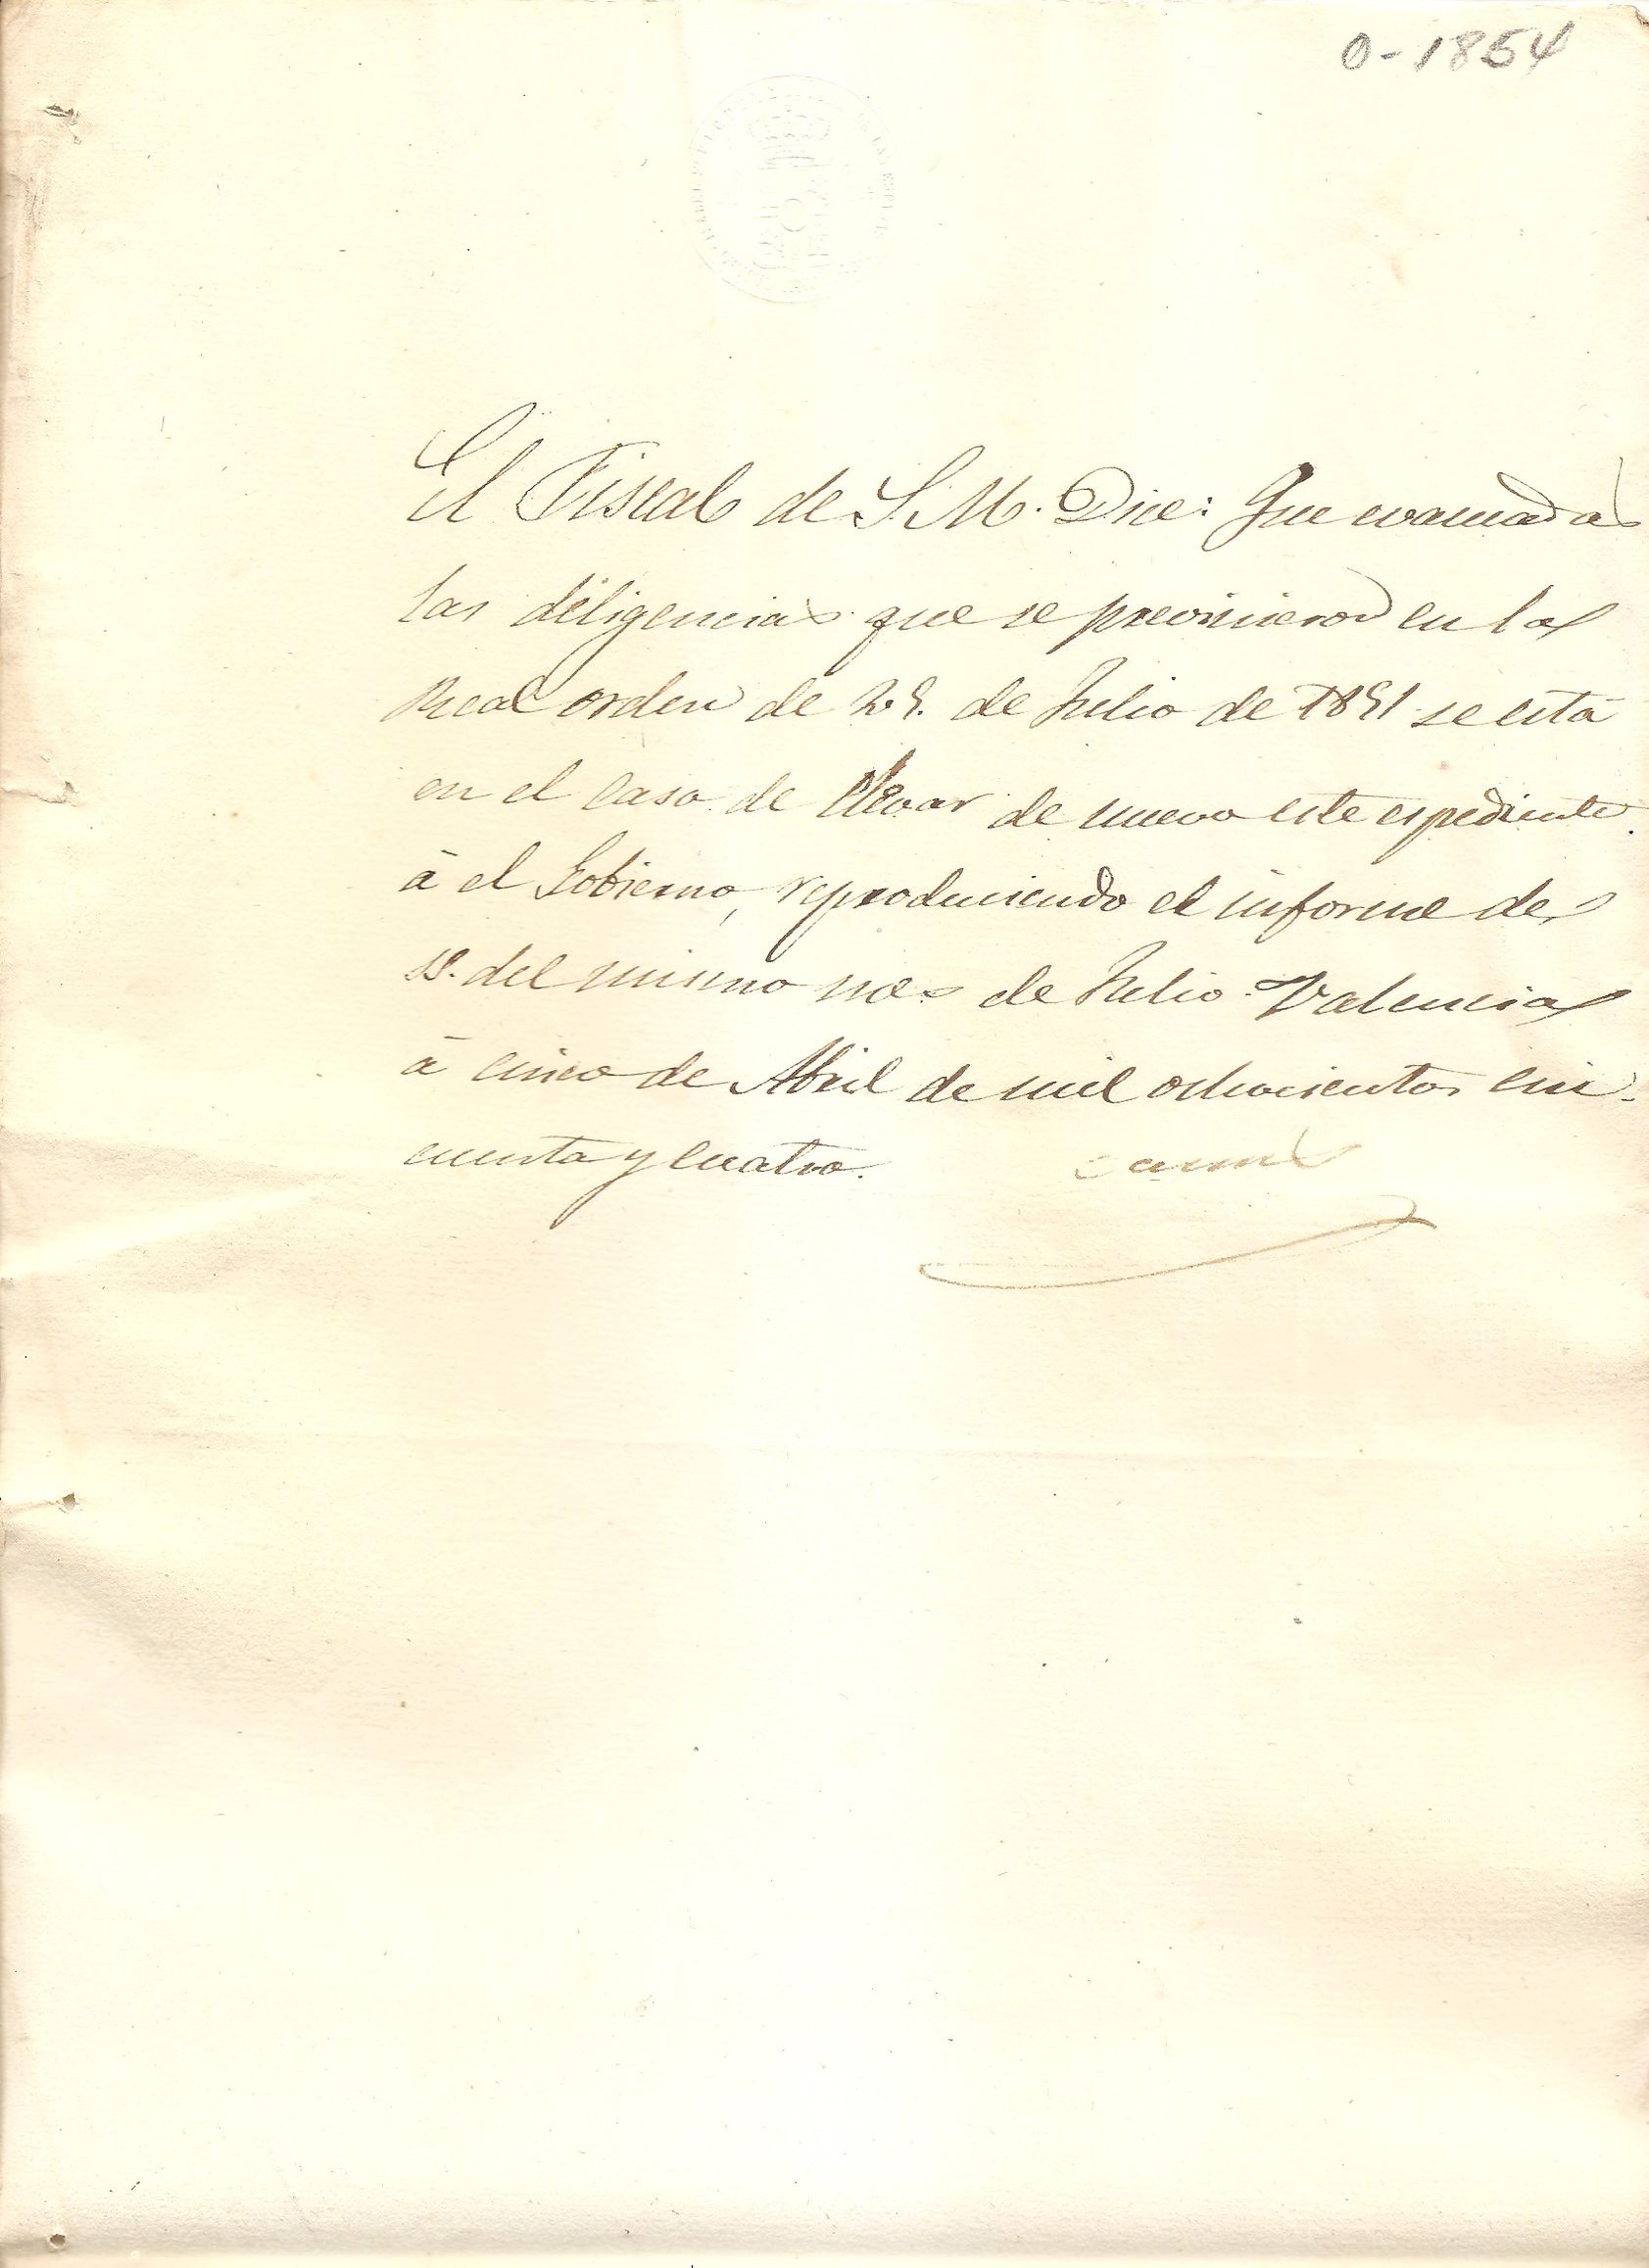 0-1854
El Fiscal de S. M. Dice: Que evacuadas
las diligencias que se previnieron en la
Real orden de 29. de Julio de 1851 se está
en el caso de elevar de nuevo este espediente
á el Gobierno, reproduciendo el informe de
del mismo mes de Julio. Valencia
á cinco de Abril de mil ochocientos cin-
cuenta y cuatro.